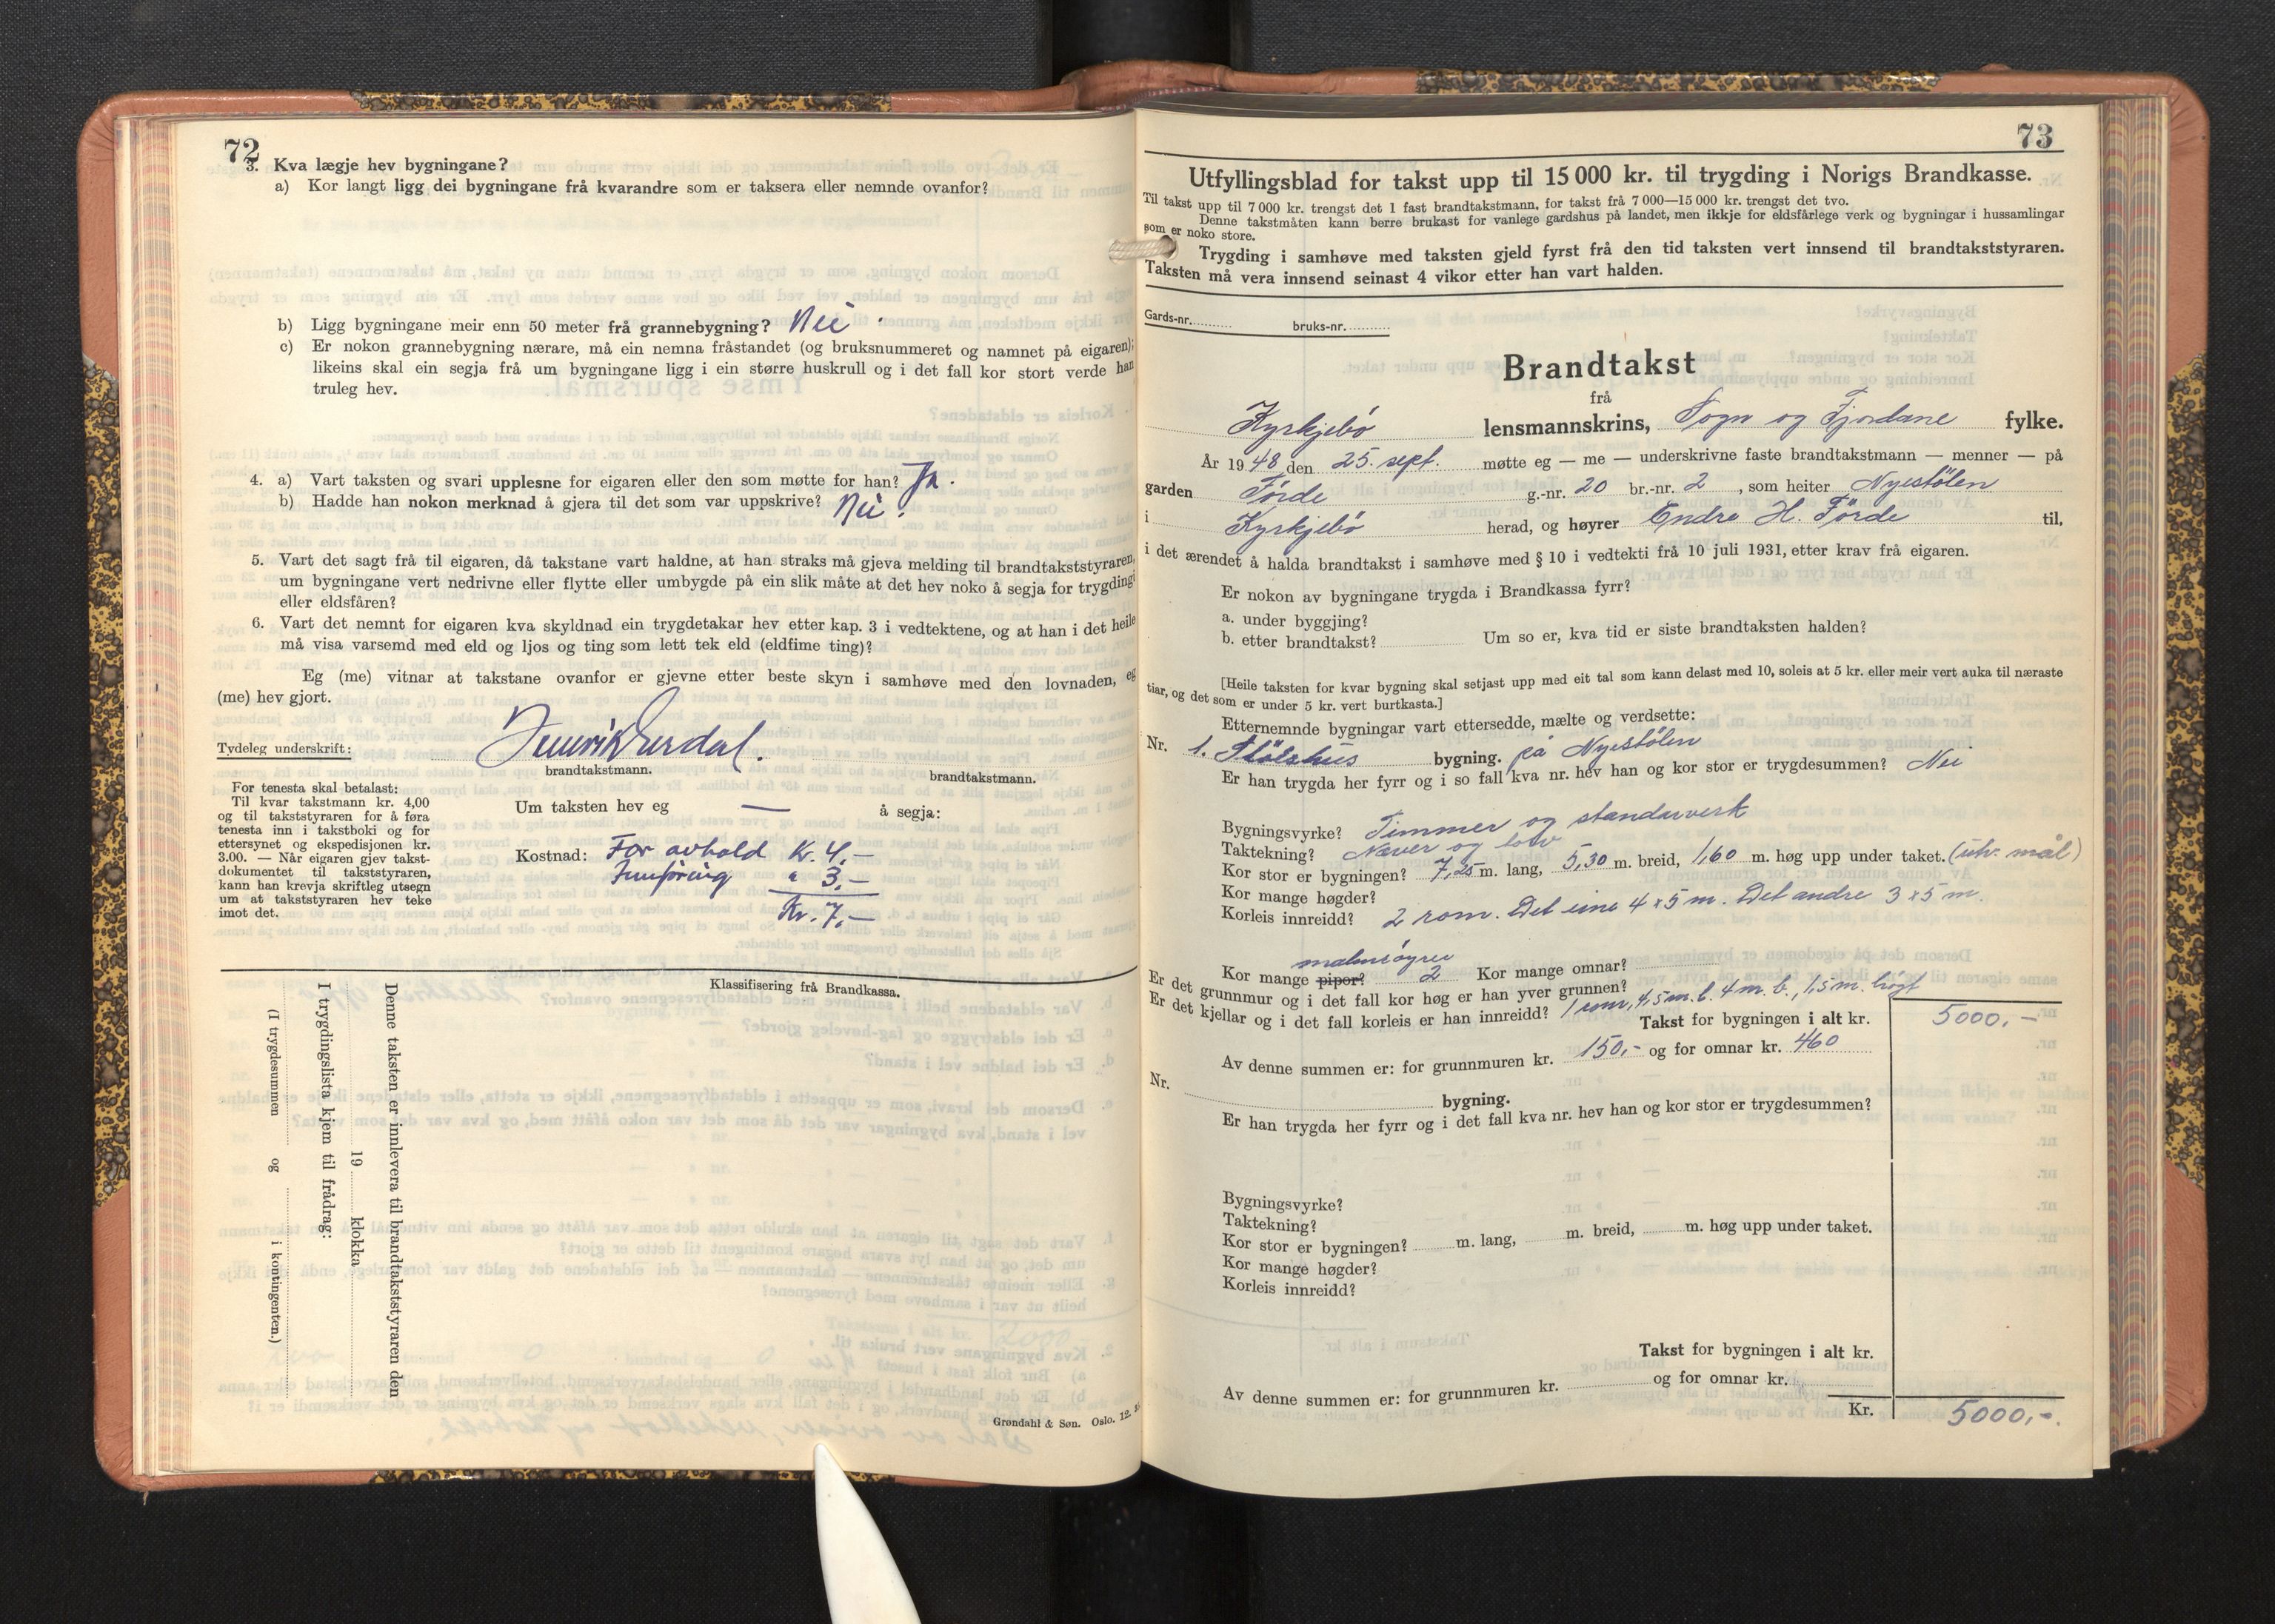 72
3. Kva lægje hev bygningane?
a) Kor langt ligg dei bygningane frå kvarandre som er taksera eller nemnde ovanfor?
b) Ligg bygningane meir enn 50 meter frå grannebygning? Nei
c) Er nokon grannebygning nærare, må ein nemna fråstandet (og bruksnummeret og namnet på eigaren);
likeins skal ein segja frå um bygningane ligg i ein større huskrull og i det fall kor stort verde han
truleg hev.
4. a) Vart taksten og svari upplesne for eigaren eller den som møtte for han? Ja.
b) Hadde han nokon merknad å gjera til det som var uppskrive? Nei.
5. Vart det sagt frå til eigaren, då takstane vart haldne, at han straks må gjeva melding til brandtakststyraren,
um bygningane vert nedrivne eller flytte eller umbygde på ein slik måte at det hev noko å segja for trygdingi
eller eldsfåren?
6. Vart det nemnt for eigaren kva skyldnad ein trygdetakar hev etter kap. 3 i vedtektene, og at han i det heile
må visa varsemd med eld og ljos og ting som lett tek eld (eldfime ting)?
Eg (me) vitnar at takstane ovanfor er gjevne etter beste skyn i samhøve med den lovnaden, eg
(me) hev gjort.
Tydeleg underskrift:
brandtakstmann. brandtakstmann.
For tenesta skal betalast:
Til kvar takstmann kr. 4,00
og til takststyraren for å føra
tenesta inn i takstboki og for
ettersynet og ekspedisjonen kr.
3.00. — Når eigaren gjev takst-
dokumentet til takststyraren,
kann han krevja skriftleg utsegn
um at takststyraren hev teke
imot det.
Um taksten hev eg — å segja:
Kostnad: For avhald Kr. 4,—
Innføring " 3,—
Kr. 7,—
Klassifisering frå Brandkassa.
Denne taksten er innlevera til brandtakststyraren den
19 klokka
I trygdingslista kjem til frådrag:
(I trygdesummen og i kontingenten.)
Grøndahl & Søn. Oslo. 12.
73
Utfyllingsblad for takst upp til 15 000 kr. til trygding i Norigs Brandkasse.
Til takst upp til 7 000 kr. trengst det 1 fast brandtakstmann, for takst frå 7 000—15 000 kr. trengst det tvo.
Denne takstmåten kann berre brukast for vanlege gardshus på landet, men ikkje for eldsfårlege verk og bygningar i hussamlingar
som er noko store.
Trygding i samhøve med taksten gjeld fyrst frå den tid taksten vert innsend til brandtakststyraren.
Taksten må vera innsend seinast 4 vikor etter han vart halden.
Gards-nr. bruks-nr.
Brandtakst
frå
Kyrkjebø lensmannskrins, Sogn og Fjordane fylke.
År 1948 den 25. sept. møtte eg — me — underskrivne faste brandtakstmann — menner — på
garden Førde g.-nr. 20 br.-nr. 2, som heiter Nyestølen
i Kyrkjebø herad, og høyrer Endre H. Førde til,
i det ærendet å halda brandtakst i samhøve med § 10 i vedtekti frå 10 juli 1931, etter krav frå eigaren.
Er nokon av bygningane trygda i Brandkassa fyrr?
a. under byggjing?
b. etter brandtakst? Um so er, kva tid er siste brandtaksten halden?
[Heile taksten for kvar bygning skal setjast upp med eit tal som kann delast med 10, soleis at 5 kr. eller meir vert auka til næraste
tiar, og det som er under 5 kr. vert burtkasta.]
Etternemnde bygningar vart ettersedde, mælte og verdsette:
Nr. 1. Stølshus bygning. på Nyestølen
Er han trygda her fyrr og i so fall kva nr. hev han og kor stor er trygdesummen? Nei
Bygningsvyrke? Timmer og standarverk
Taktekning? Næver og torv
Kor stor er bygningen? 7,25 m. lang, 5,30 m. breid, 1,60 m. høg upp under taket. (utv. mål)
Kor mange høgder?
Korleis innreidd? 2 rom. Det eine 4 x 5 m. Det andre 3 x 5 m.
Kor mange piper? 2 Kor mange omnar?
Er det grunnmur og i det fall kor høg er han yver grunnen?
Er det kjellar og i det fall korleis er han innreidd? 1 rom, 4,5 m. l. 4 m. b., 1,5 m. høgt
Takst for bygningen i alt kr. 5000,—
Av denne summen er: for grunnmuren kr. 150,— og for omnar kr. 460
Nr. bygning.
Er han trygda her fyrr og i det fall kva nr. hev han og kor stor er trygdesummen?
Bygningsvyrke?
Taktekning?
Kor stor er bygningen? m. lang, m. breid, m. høg upp under taket.
Kor mange høgder?
Korleis innreidd?
Takst for bygningen i alt kr.
Av denne summen er: for grunnmuren kr. og for omnar kr.
Kr. 5000,—.